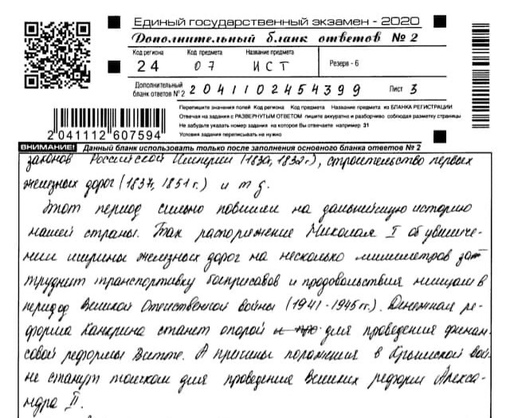 Единый государственный экзамен - 2020
Дополнительный бланк ответов № 2
Код региона Код предмета Название предмета
24 07 ИСТ Резерв - 6
Дополнительный бланк ответов № 2 2041102454399 Лист 3
Перепишите значения полей Код региона Код предмета Название предмета из БЛАНКА РЕГИСТРАЦИИ
Отвечая на задания с РАЗВЕРНУТЫМ ОТВЕТОМ пишите аккуратно и разборчиво соблюдая разметку страницы
Не забудьте указать номер задания на которое Вы отвечаете например 31
Условия задания переписывать не нужно
2041112607594
ВНИМАНИЕ! Данный бланк использовать только после заполнения основного бланка ответов № 2
законов Российской Империи (1830, 1832г.), строительство первых
железных дорог (1837, 1851г.) и т д.
Этот период сильно повлиял на дальнейшую историю
нашей страны. Так распоряжение Николая I об увеличе-
нии ширины железных дорог на несколько миллиметров зат
труднит транспортивку боеприпасов и продовольствия немцам в
период Великой Отечественной войны (1941-1945гг.). Денежная ре-
форма Канкрина станет опорой для проведения финан
совой реформы Витте. А причины поражения в Крымской вой
не станут толчком для проведения Великих реформ Алекса-
ндра II.